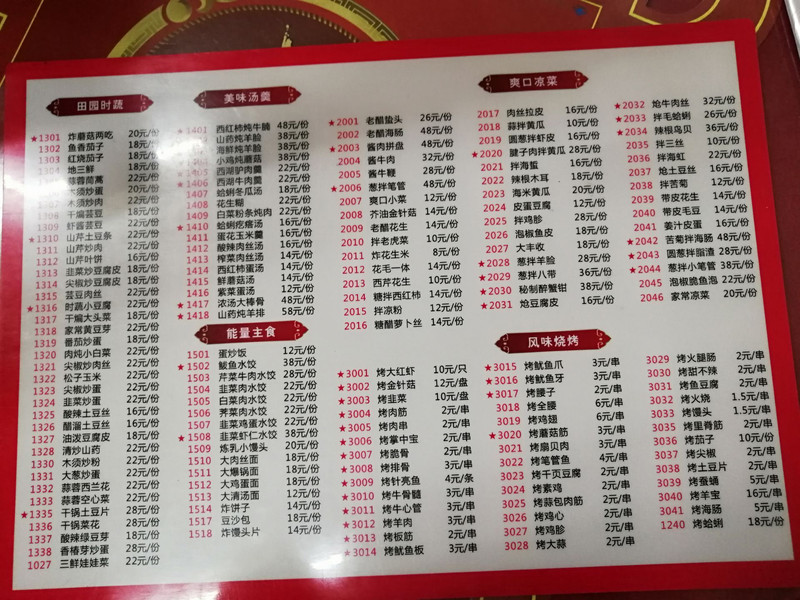 田园时蔬
★1301 炸蘑菇两吃 20元/份
1302 鱼香茄子 18元/份
1303 红烧茄子 18元/份
1304 地三鲜 18元/份
蒜蓉茼蒿 22元/份
木须炒蛋 20元/份
木须炒肉 22元/份
1308 干煸芸豆 18元/份
1309 虾酱芸豆 22元/份
★1310 山芹土豆条 22元/份
1311 山芹炒肉 22元/份
1312 山芹叶饼 16元/份
1313 韭菜炒豆腐皮 18元/份
1314 尖椒炒豆腐皮 18元/份
1315 芸豆肉丝 22元/份
★1316 时蔬小豆腐 22元/份
1317 干煸大头菜 18元/份
1318 家常黄豆芽 22元/份
1319 番茄炒蛋 18元/份
1320 肉炖小白菜 22元/份
1321 尖椒炒肉丝 22元/份
1322 松子玉米 22元/份
1323 尖椒炒蛋 22元/份
1324 韭菜炒蛋 22元/份
1325 酸辣土豆丝 16元/份
1326 醋溜土豆丝 16元/份
1327 油泼豆腐皮 18元/份
1328 清炒山药 22元/份
1330 木须炒粉 22元/份
1331 大葱炒蛋 22元/份
1332 蒜蓉西兰花 22元/份
1333 蒜蓉空心菜 22元/份
★1335 干锅土豆片 28元/份
1336 干锅菜花 28元/份
1337 酸辣绿豆芽 18元/份
1338 香椿芽炒蛋 28元/份
1027 三鲜娃娃菜 22元/份
美味汤羹
★1401 西红柿炖牛腩 48元/份
山药炖羊脸 38元/份
海鲜炖羊脸 38元/份
★1404 小鸡炖蘑菇 38元/份
★1405 西湖驴肉羹 22元/份
★1406 西湖牛肉羹 22元/份
1407 蛤蜊冬瓜汤 18元/份
1408 花生糊 22元/份
1409 白菜粉条炖肉 22元/份
★1410 蛤蜊疙瘩汤 16元/份
1411 蛋花玉米羹 16元/份
1412 酸辣肉丝汤 16元/份
1413 榨菜肉丝汤 14元/份
1414 西红柿蛋汤 14元/份
1415 鲜蘑菇汤 14元/份
1416 紫菜蛋汤 12元/份
★1417 浓汤大棒骨 48元/份
★1418 山药炖羊排 58元/份
能量主食
1501 蛋炒饭 12元/份
★1502 鲅鱼水饺 38元/份
1503 芹菜牛肉水饺 28元/份
1504 韭菜肉水饺 22元/份
1505 白菜肉水饺 22元/份
1506 荠菜肉水饺 22元/份
1507 韭菜鸡蛋水饺 22元/份
★1508 韭菜虾仁水饺 38元/份
1509 炼乳小馒头 20元/份
1510 大肉丝面 18元/份
1511 大爆锅面 18元/份
1512 大鸡蛋面 18元/份
1513 大清汤面 12元/份
1514 炸饼子 14元/份
1517 豆沙包 18元/份
1518 炸馒头片 14元/份
爽口凉菜
★2001 老醋蛰头 26元/份
2002 老醋海肠 48元/份
★2003 酱肉拼盘 48元/份
2004 酱牛肉 32元/份
2005 酱牛鞭 28元/份
★2006 葱拌笔管 48元/份
2007 爽口小菜 12元/份
2008 芥油金针菇 14元/份
2009 老醋花生 14元/份
2010 拌老虎菜 10元/份
2011 炸花生米 8元/份
2012 花毛一体 14元/份
2013 西芹花生 10元/份
2014 糖拌西红柿 14元/份
2015 拌凉粉 12元/份
2016 糖醋萝卜丝 14元/份
2017 肉丝拉皮 16元/份
2018 蒜拌黄瓜 10元/份
2019 圆葱拌虾皮 16元/份
★2020 腱子肉拌黄瓜 28元/份
2021 拌海蜇 16元/份
2022 辣根木耳 18元/份
2023 海米黄瓜 20元/份
2024 皮蛋豆腐 12元/份
2025 拌鸡胗 28元/份
2026 泡椒鱼皮 18元/份
2027 大丰收 18元/份
★2028 葱拌羊脸 28元/份
★2029 葱拌八带 36元/份
★2030 秘制醉蟹钳 38元/份
★2031 炝豆腐皮 16元/份
★2032 炝牛肉丝 32元/份
★2033 拌毛蛤蜊 26元/份
★2034 辣根鸟贝 36元/份
2035 拌三丝 10元/份
2036 拌海虹 22元/份
2037 炝土豆丝 16元/份
2038 拌苦菊 12元/份
2039 带皮花生 14元/份
2040 带皮毛豆 14元/份
2041 姜汁皮蛋 16元/份
★2042 苦菊拌海肠 48元/份
★2043 圆葱拌脂渣 28元/份
★2044 葱拌小笔管 38元/份
2045 泡椒脆鱼泡 22元/份
2046 家常凉菜 20元/份
风味烧烤
★3001 烤大红虾 10元/只
★3002 烤金针菇 12元/盘
★3003 烤韭菜 10元/盘
★3004 烤肉筋 2元/串
★3005 烤肉串 2元/串
★3006 烤掌中宝 2元/串
★3007 烤脆骨 2元/串
★3008 烤排骨 3元/串
★3009 烤针亮鱼 4元/条
★3010 烤牛骨髓 3元/串
★3011 烤牛心管 3元/串
★3012 烤羊肉 3元/串
★3013 烤板筋 2元/串
★3014 烤鱿鱼板 3元/串
★3015 烤鱿鱼爪 3元/串
★3016 烤鱿鱼牙 3元/串
★3017 烤腰子 2元/串
3018 烤全腰 6元/串
3019 烤鸡翅 6元/串
★3020 烤蘑菇筋 2元/串
3021 烤扇贝肉 3元/串
3022 烤笔管鱼 4元/串
3023 烤干页豆腐 2元/串
3024 烤素鸡 2元/串
3025 蒜苔包肉筋 2元/串
3026 烤鸡心 2元/串
3027 烤鸡胗 2元/串
3028 烤大蒜 2元/串
3029 烤火腿肠 2元/串
3030 烤甜不辣 2元/串
3031 烤鱼豆腐 2元/串
3032 烤火烧 1.5元/串
3033 烤馒头 1.5元/串
3035 烤里脊筋 2元/串
3036 烤茄子 10元/份
3037 烤尖椒 2元/串
3038 烤土豆片 2元/串
3039 烤蚕蛹 5元/串
3040 烤羊宝 16元/串
3041 烤海肠 5元/串
1240 烤蛤蜊 18元/份